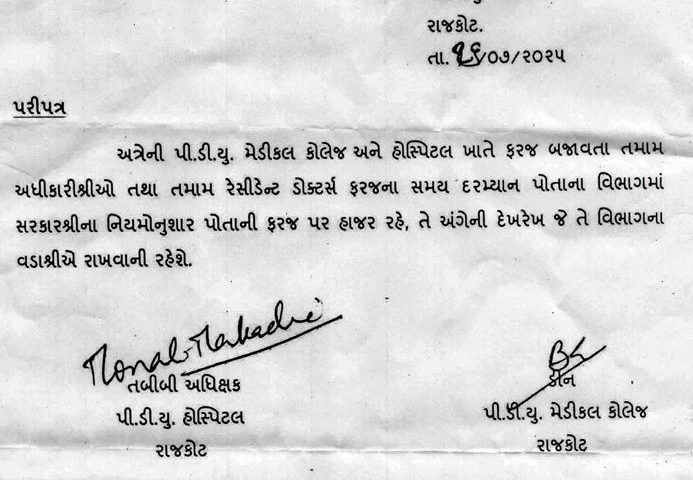 રાજકોટ.
તા. ૧૬/૦૭/૨૦૨૫
પરીપત્ર
અત્રેની પી.ડી.યુ. મેડીકલ કોલેજ અને હોસ્પિટલ ખાતે ફરજ બજાવતા તમામ
અધીકારીશ્રીઓ તથા તમામ રેસીડેન્ટ ડોક્ટર્સ ફરજના સમય દરમ્યાન પોતાના વિભાગમાં
સરકારશ્રીના નિયમોનુશાર પોતાની ફરજ પર હાજર રહે, તે અંગેની દેખરેખ જે તે વિભાગના
વડાશ્રીએ રાખવાની રહેશે.
તબીબી અધિક્ષક
પી.ડી.યુ. હોસ્પિટલ
રાજકોટ
ડીન
પી.ડી.યુ. મેડીકલ કોલેજ
રાજકોટ